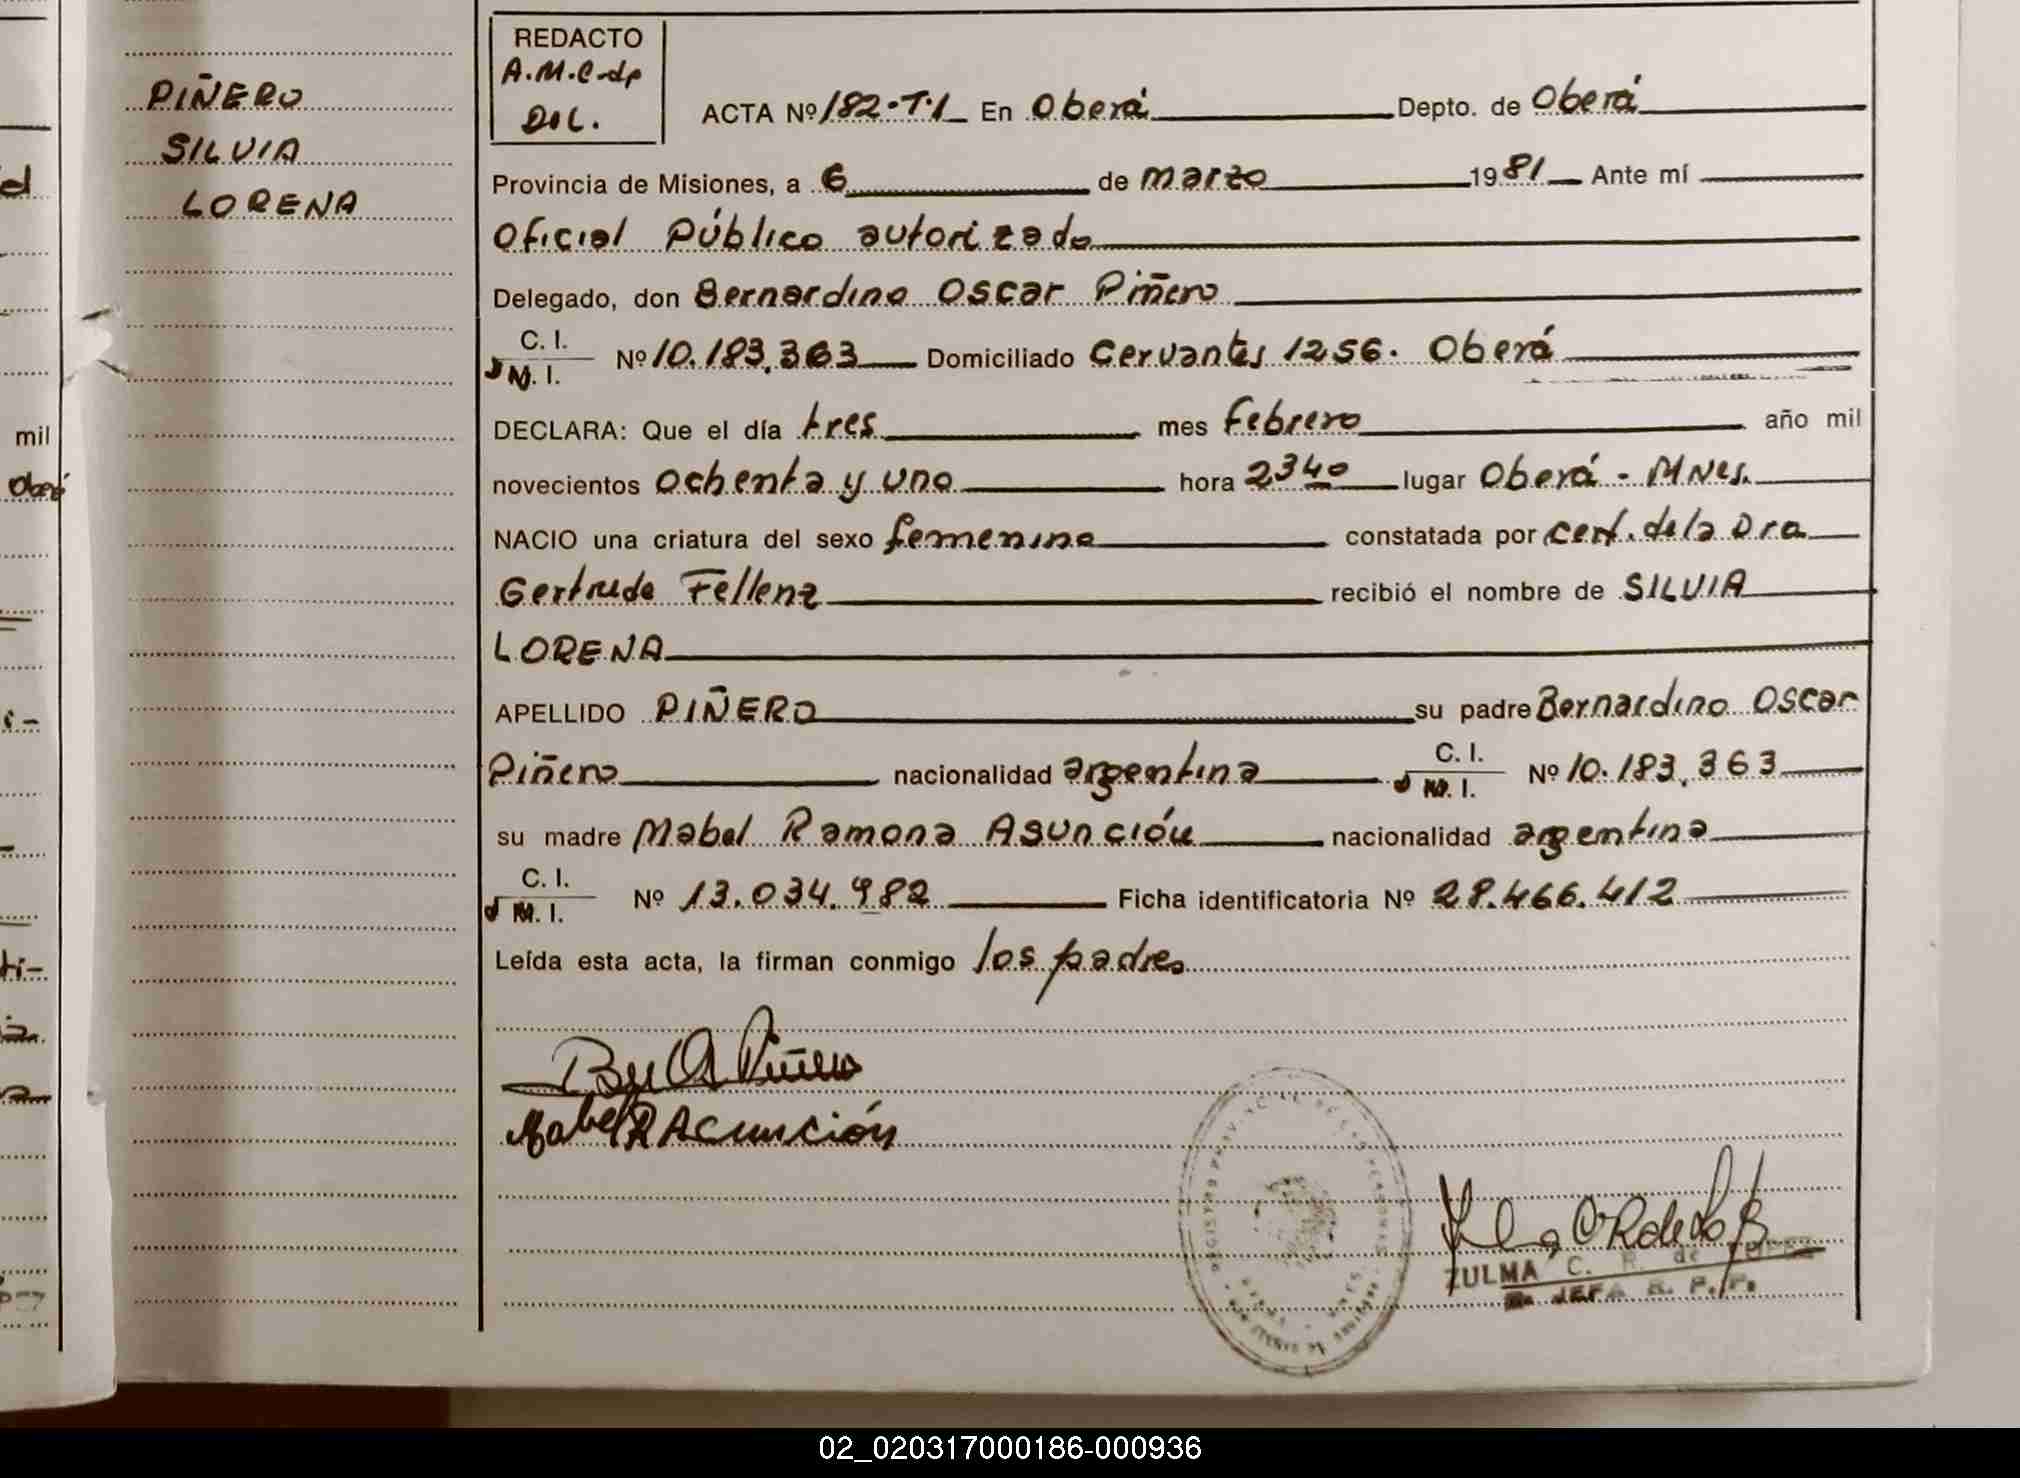 PIÑERO
SILVIA
LORENA
REDACTO
A.M.C-dp
ACTA Nº 182-T.1 En Oberá Depto. de Oberá
Provincia de Misiones, a 6 de marzo 1981 Ante mí
Oficial Público autorizado
Delegado, don Bernardino Oscar Piñero
C. I.
M. I. Nº 10.183.363 Domiciliado Cervantes 1256. Oberá
DECLARA: Que el día tres mes Febrero año mil
novecientos ochenta y uno hora 2340 lugar Oberá - MNes.
NACIO una criatura del sexo femenino constatada por cert. de la Dra
Gertrudo Fellenz recibió el nombre de SILVIA
LORENA
APELLIDO PIÑERO su padre Bernardino Oscar
Piñero nacionalidad argentina C. I. M. I. Nº 10.183.363
su madre Mabel Ramona Asunción nacionalidad argentina
C. I.
M. I. Nº 13.034.982 Ficha identificatoria Nº 28.466.412
Leída esta acta, la firman conmigo los padres
Piñero
Mabel R Acunción
ZULMA C. R. de LOPEZ
JEFA R. P. P.
mil
Oberá
02_020317000186-000936